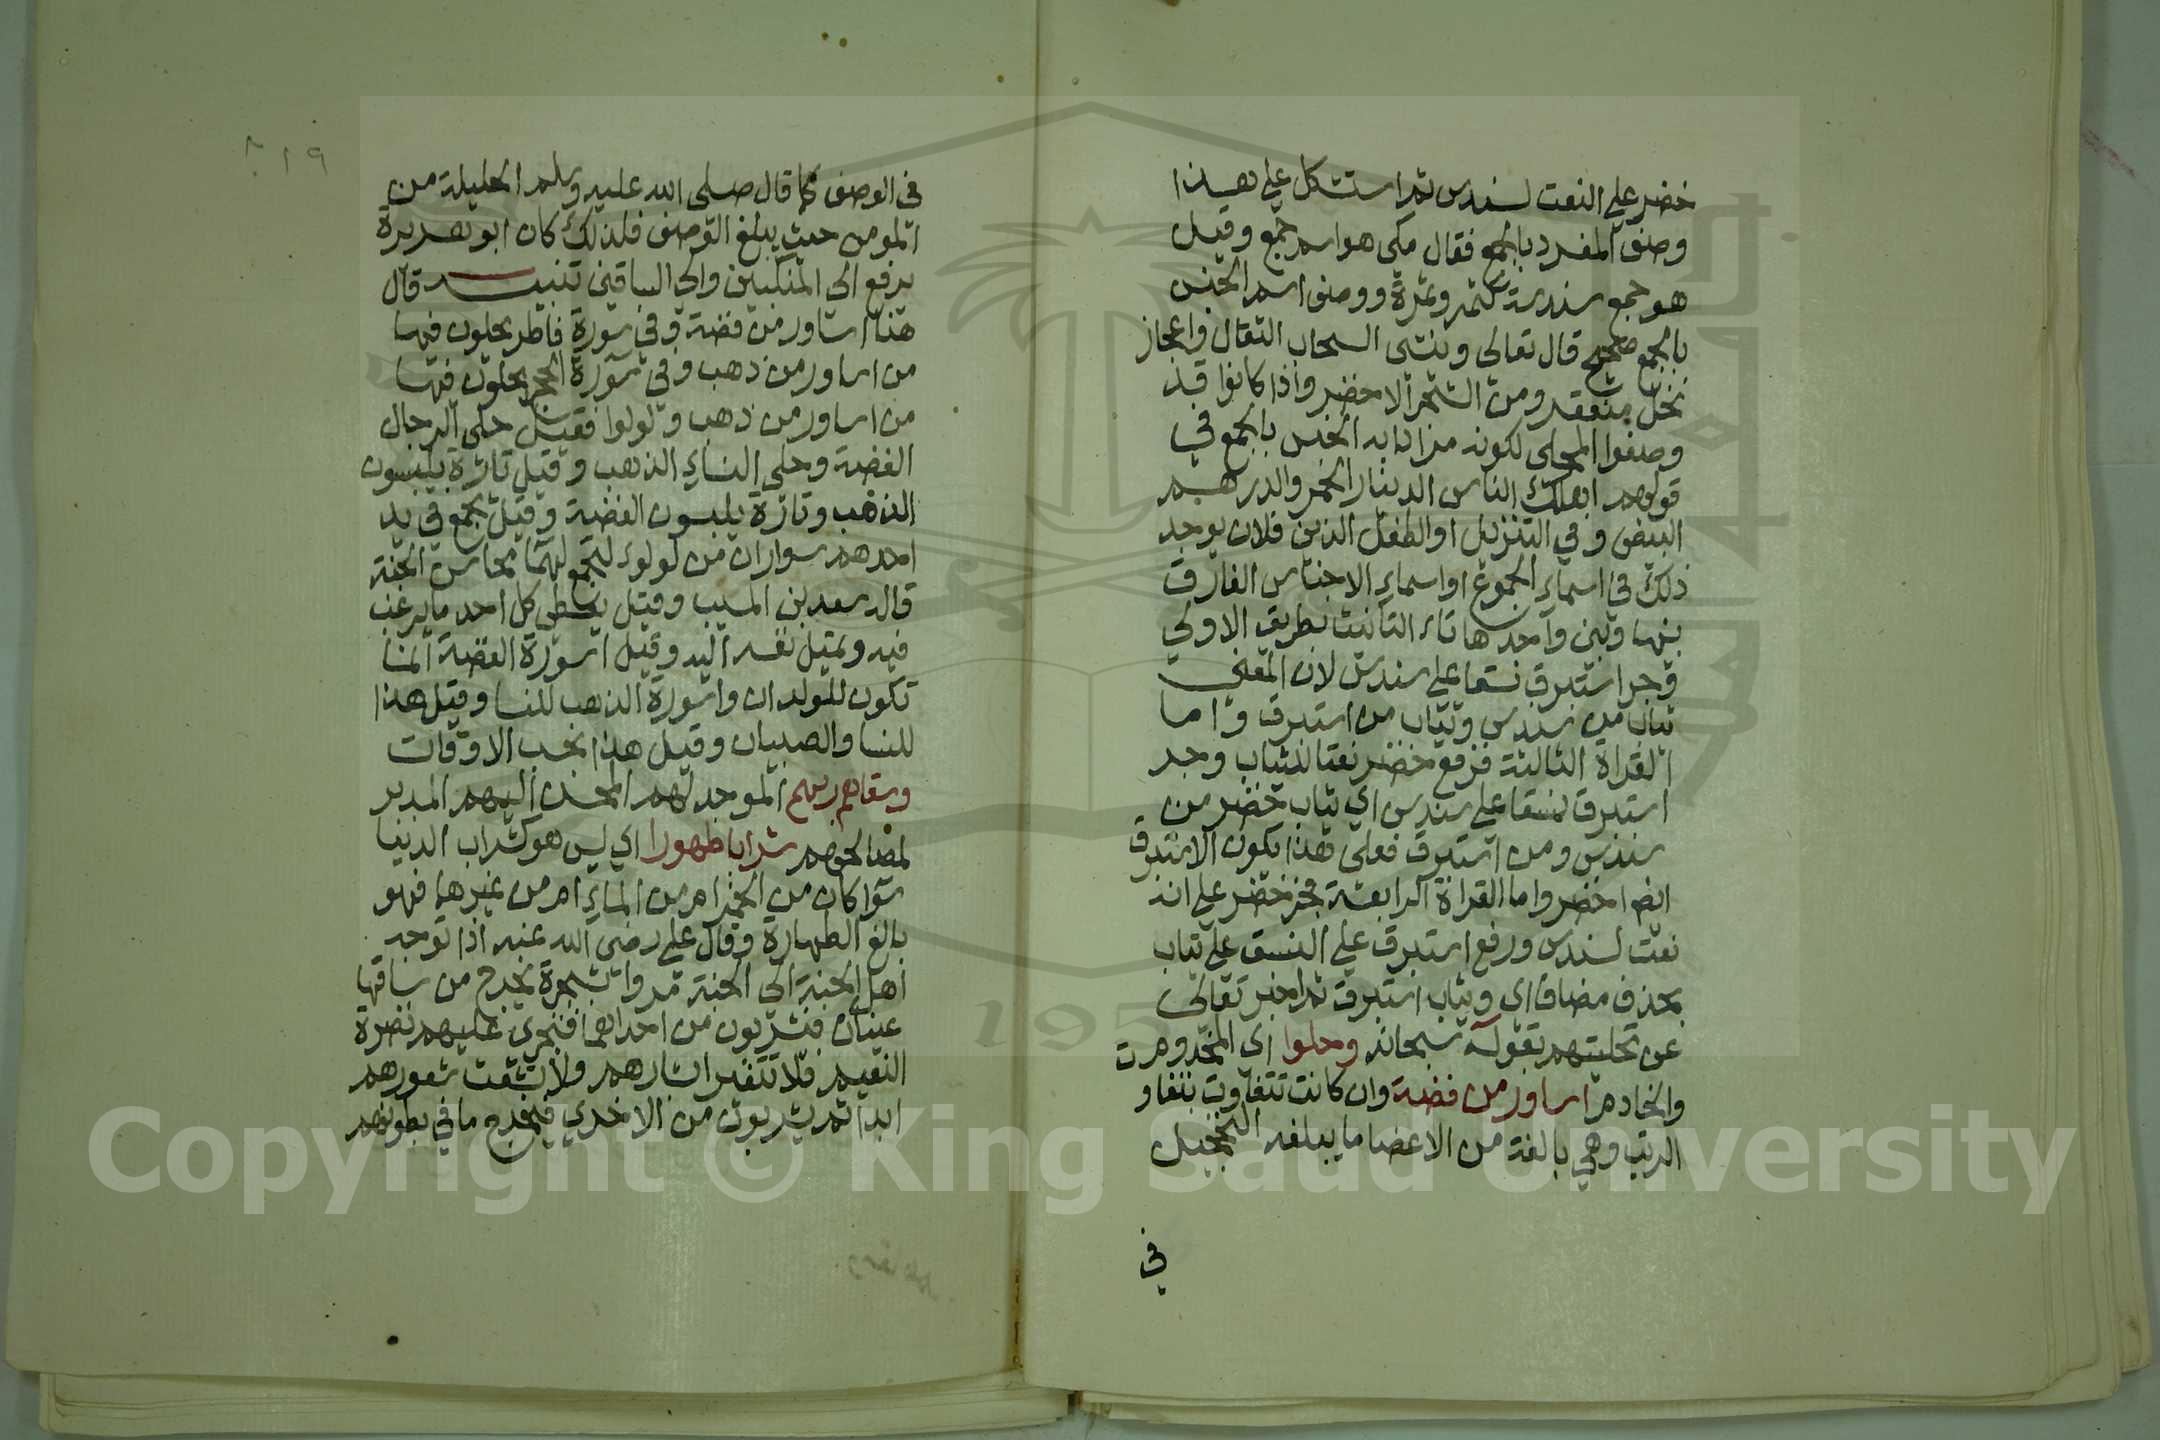 خضر على النعت لسندس ثم استشكل على هذا
وصف المفرد بالجمع فقال مكى هو اسم جمع وقيل
هو جمع سندسة كتمر وتمرة ووصف اسم الجنس
بالجمع صحيح قال تعالى وينشى السحاب الثقال واعجاز
نخل منقعر ومن الشجر الاخضر واذا كانوا قد
وصفوا المحلى لكونه مرادا به الجنس بالجمع في
قولهم اهلك الناس الدينار الحمر والدرهم
البيض وفي التنزيل او الطفل الذين فلان يوجد
ذلك في اسماء الجموع او اسماء الاجناس الفارق
بينها وبين واحدها تاء التانيث بطريق الاولى
وجر استبرق نسقا على سندس لان المعنى
ثياب من سندس وثياب من استبرق واما
القراة الثالثة فرفع خضر نعتا لثياب وجر
استبرق نسقا على سندس اي ثياب خضر من
سندس ومن استبرق فعلى هذا يكون الاستبرق
ايضا اخضر واما القراة الرابعة فجر خضر على انه
نعت لسندس ورفع استبرق على النسق على ثياب
بحذف مضاف اي وثياب استبرق ثم اخبر تعالى
عن تحليتهم بقوله سبحانه وحلوا اي المخدومون
والخادم اساور من فضة وان كانت تتفاوت بتفاو
الرتب وهي بالغة من الاعضا ما يبلغه التحجيل
في
٢١٩
في الوضو كما قال صلى الله عليه وسلم الحلية من
المومن حيث يبلغ الوضو فلذلك كان ابو هريرة
يرفع الى المنكبين والى الساقين تنبيه قال
هنا اساور من فضة وفي سورة فاطر يحلون فيها
من اساور من ذهب وفي سورة الحج يحلون فيها
من اساور من ذهب ولولوا فقيل حلى الرجال
الفضة وحلى النساء الذهب وقيل تارة يلبسون
الذهب وتارة يلبسون الفضة وقيل يجمع في يد
احدهم سواران من لولوء ليجمع لهما محاسن الجنة
قاله سعد بن المسيب وقيل يعطى كل احد ما يرغب
فيه وتميل نفسه اليه وقيل اسورة الفضة انما
تكون للولدان واسورة الذهب للنسا وقيل هذا
للنسا والصبيان وقيل هذا بحسب الاوقات
وسقاهم ربهم الموجد لهم المحسن اليهم المدبر
لمصالحهم شرابا طهورا اي ليس هو كشراب الدنيا
سوا كان من الخمر ام من الماء ام من غيرها فهو
بالغ الطهارة وقال علي رضى الله عنه اذا توجه
اهل الجنة الى الجنة مروا بشجرة يخرج من ساقها
عينان فيشربون من احداهما فتجري عليهم نضرة
النعيم فلا تتغير ابشارهم ولا تشعث شعورهم
ابدا ثم يشربون من الاخرى فيخرج ما في بطونهم
Copyright © King Saud University
195